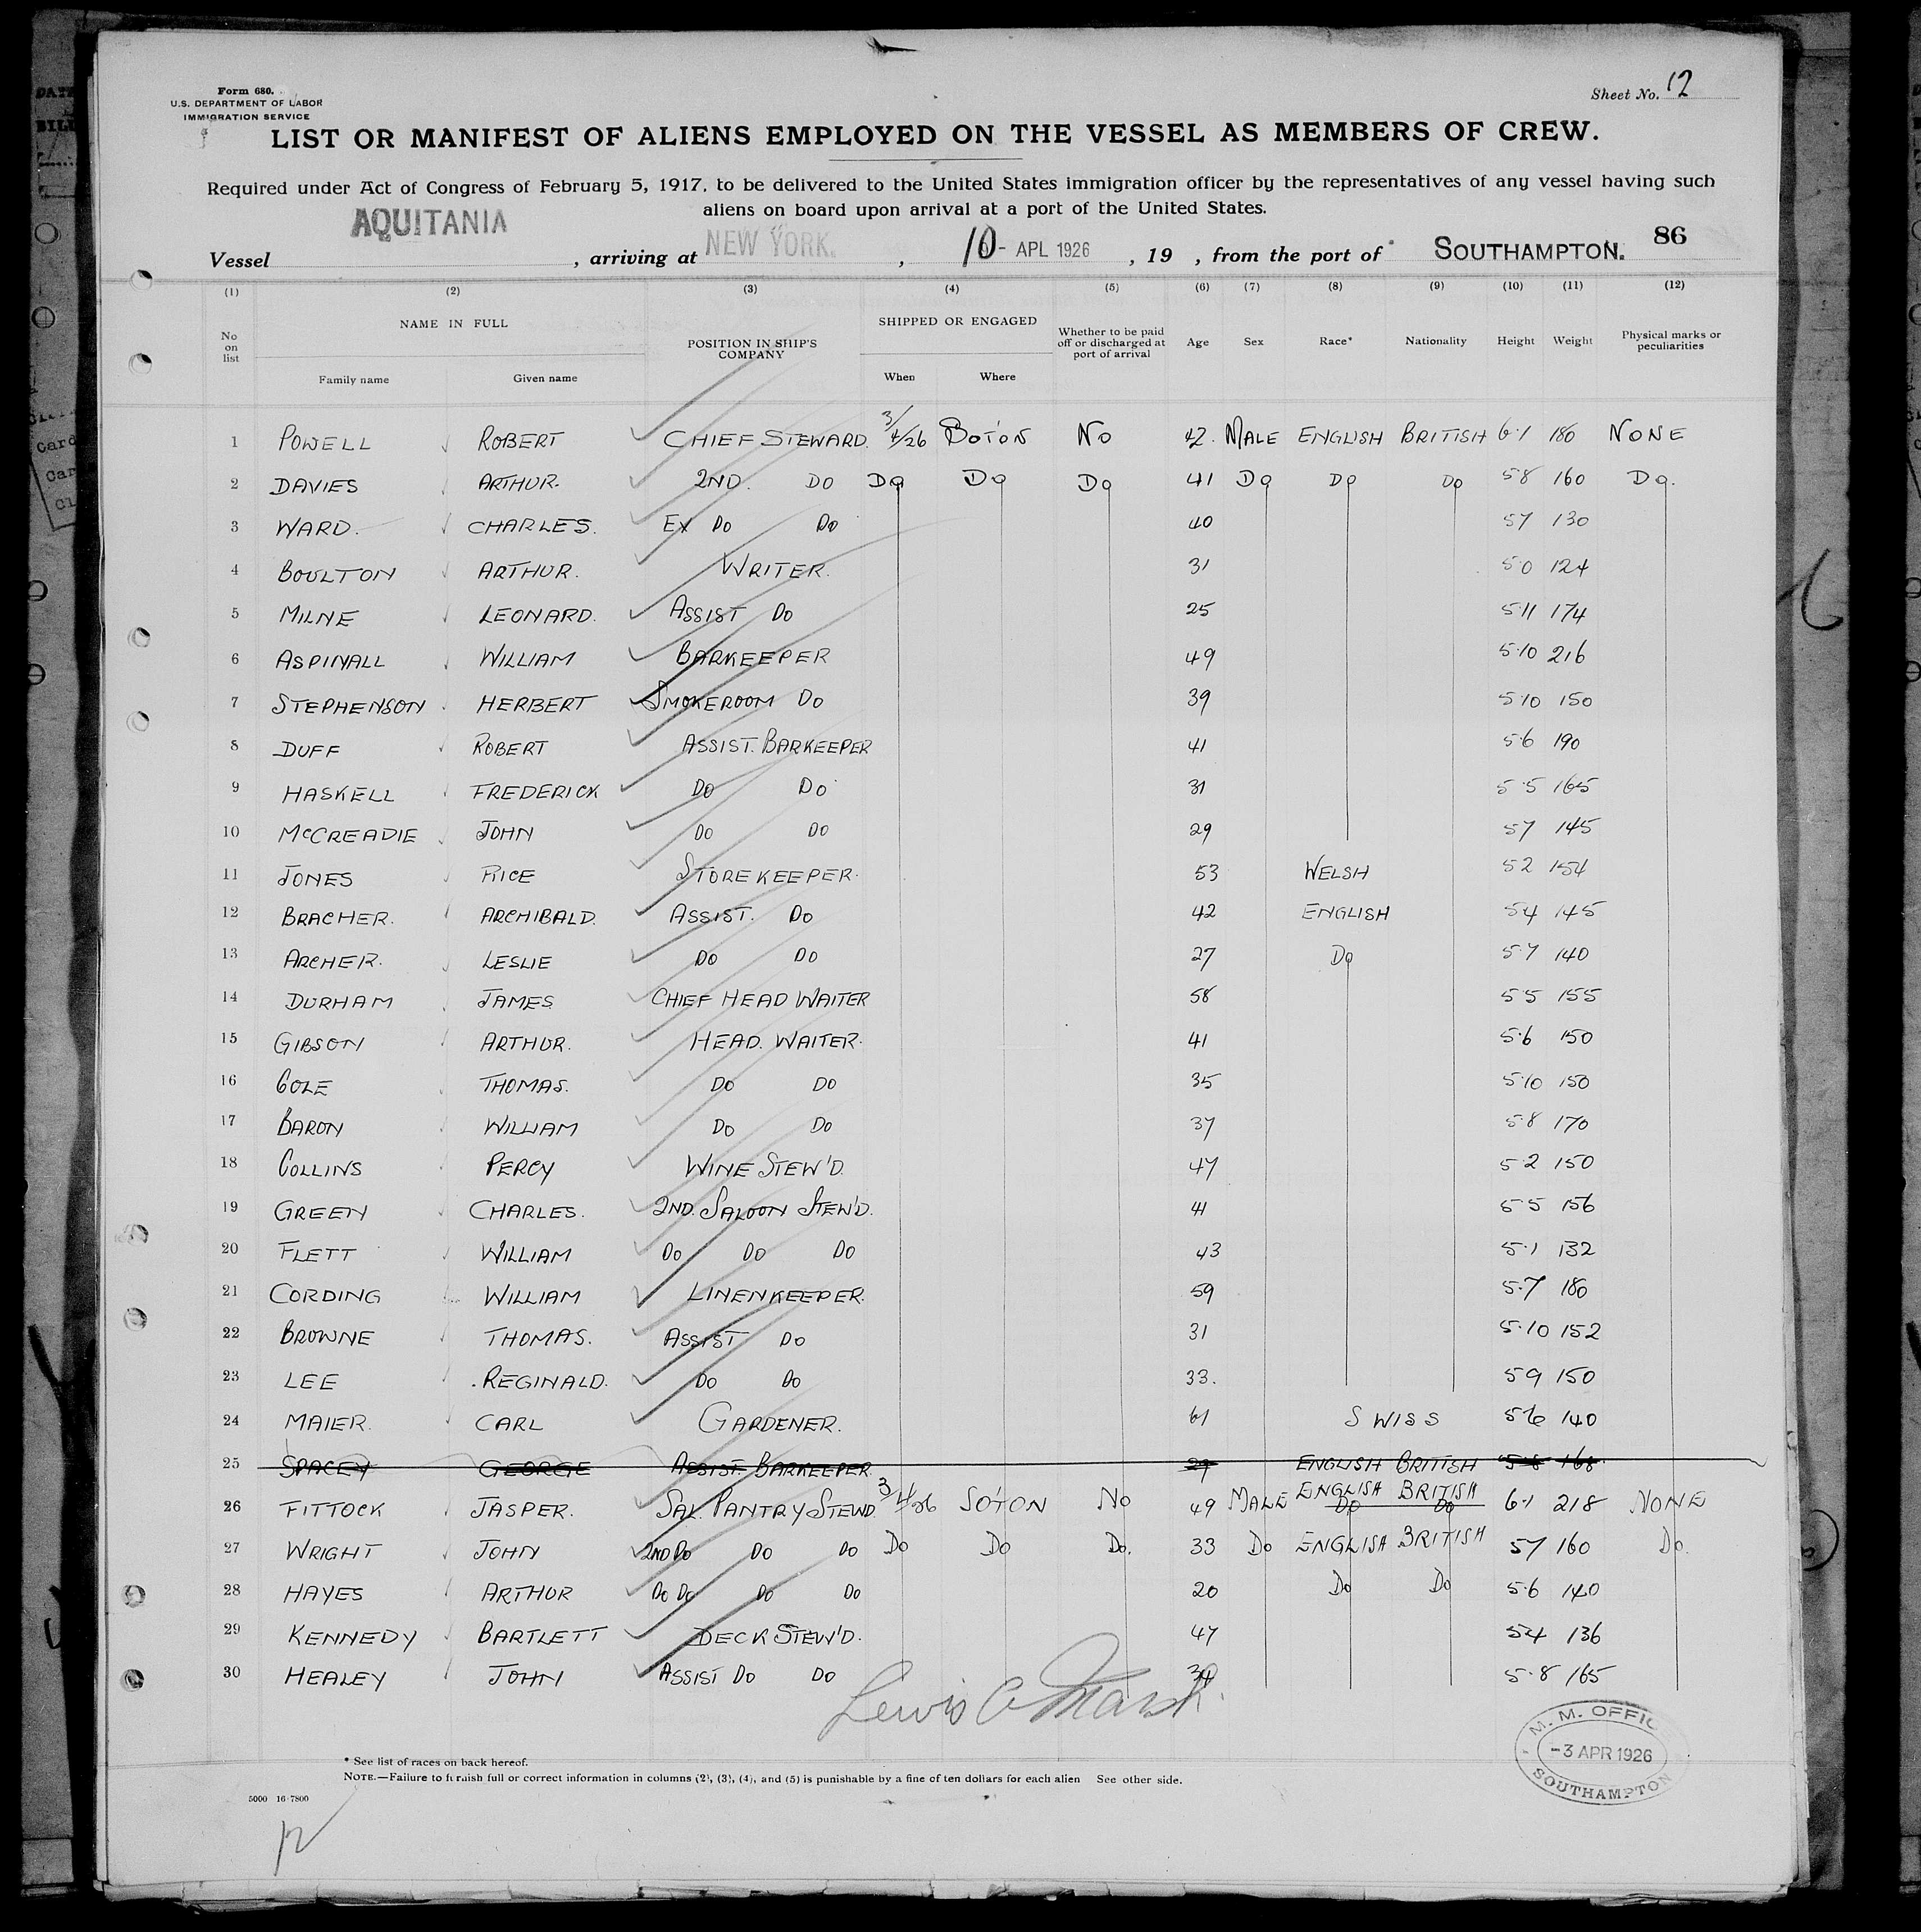 Form 680.
U.S. DEPARTMENT OF LABOR
IMMIGRATION SERVICE
Sheet No. 12
LIST OR MANIFEST OF ALIENS EMPLOYED ON THE VESSEL AS MEMBERS OF CREW.
Required under Act of Congress of February 5, 1917, to be delivered to the United States immigration officer by the representatives of any vessel having such
aliens on board upon arrival at a port of the United States.
Vessel AQUITANIA, arriving at NEW YORK., 10 - APL 1926, 19 , from the port of SOUTHAMPTON. 86
(1) (2) (3) (4) (5) (6) (7) (8) (9) (10) (11) (12)
No on list NAME IN FULL Family name Given name POSITION IN SHIP'S COMPANY SHIPPED OR ENGAGED When Where Whether to be paid off or discharged at port of arrival Age Sex Race* Nationality Height Weight Physical marks or peculiarities
1 POWELL ROBERT CHIEF STEWARD. 3/4/26 BOTON NO 42. MALE ENGLISH BRITISH 6·1 180 NONE
2 DAVIES ARTHUR. 2ND. DO DO DO DO 41 DO DO DO 5 8 160 DO.
3 WARD. CHARLES. EX DO DO 40 5 7 130
4 BOULTON ARTHUR. WRITER. 31 5·0 124
5 MILNE LEONARD. ASSIST DO 25 5·11 174
6 ASPINALL WILLIAM BARKEEPER 49 5·10 216
7 STEPHENSON HERBERT SMOKEROOM DO 39 5·10 150
8 DUFF ROBERT ASSIST. BARKEEPER 41 5·6 190
9 HASKELL FREDERICK DO DO 31 5 5 165
10 McCREADIE JOHN DO DO 29 5 7 145
11 JONES RICE STOREKEEPER. 53 WELSH 5 2 154
12 BRACHER. ARCHIBALD. ASSIST. DO 42 ENGLISH 5 4 145
13 ARCHER. LESLIE DO DO 27 DO 5·7 140
14 DURHAM JAMES CHIEF HEAD WAITER 58 5 5 155
15 GIBSON ARTHUR. HEAD. WAITER. 41 5·6 150
16 COLE THOMAS. DO DO 35 5·10 150
17 BARON WILLIAM DO DO 37 5·8 170
18 COLLINS PERCY WINE STEW'D. 47 5·2 150
19 GREEN CHARLES. 2ND. SALOON STEW'D. 41 5·5 156
20 FLETT WILLIAM DO DO DO 43 5·1 132
21 CORDING WILLIAM LINENKEEPER. 59 5·7 180
22 BROWNE THOMAS. ASSIST DO 31 5·10 152
23 LEE REGINALD. DO DO 33. 5 9 150
24 MAIER. CARL GARDENER. 61 SWISS 5 6 140
25 SPACEY GEORGE ASSIST. BARKEEPER 29 ENGLISH BRITISH 5·8 168
26 FITTOCK JASPER. SAL. PANTRY STEWD. 3/4/26 SO'TON NO 49 MALE ENGLISH BRITISH DO DO 6·1 218 NONE
27 WRIGHT JOHN 2ND DO DO DO DO DO DO. 33 DO ENGLISH BRITISH 5 7 160 DO.
28 HAYES ARTHUR DO DO DO DO 20 DO DO 5·6 140
29 KENNEDY BARTLETT DECK STEW'D. 47 5 4 136
30 HEALEY JOHN ASSIST DO DO 34 5·8 165
Lewis A Marsh.
M. M. OFFICE
-3 APR 1926
SOUTHAMPTON
* See list of races on back hereof.
NOTE.—Failure to furnish full or correct information in columns (2), (3), (4), and (5) is punishable by a fine of ten dollars for each alien See other side.
5000 16-7800
12